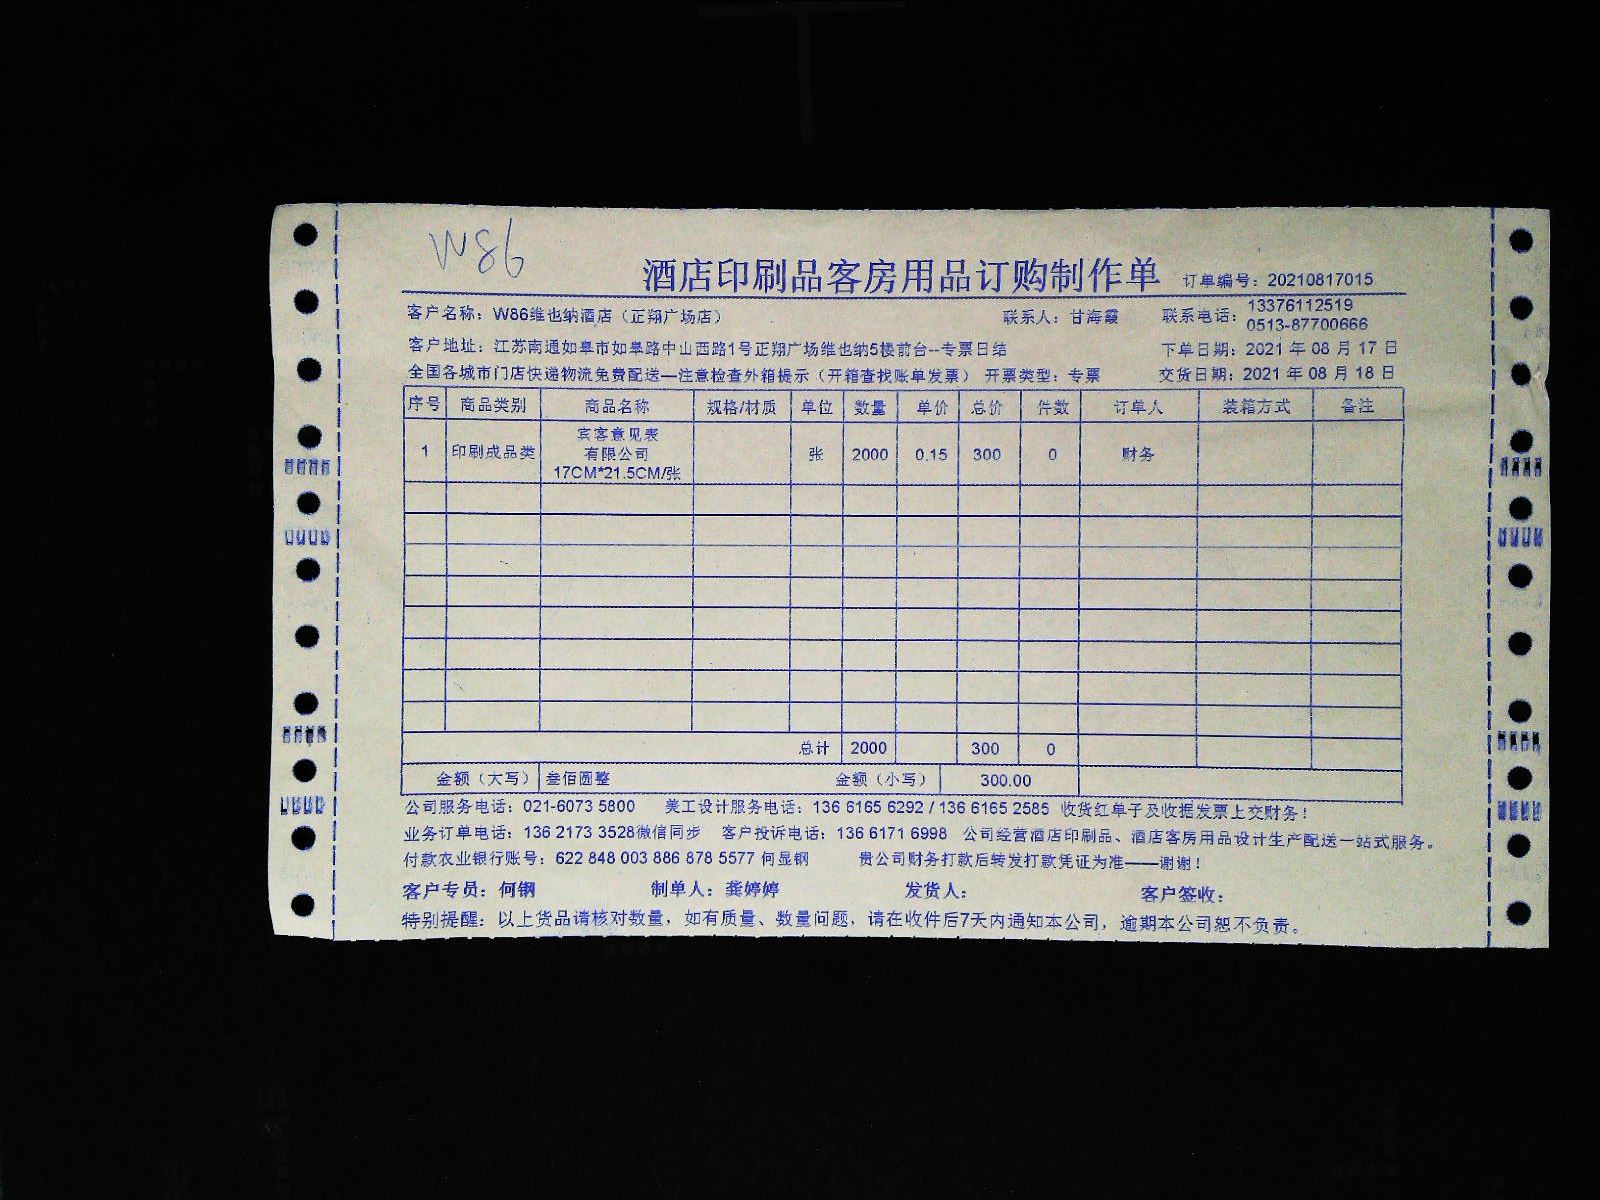 W86
酒店印刷品客房用品订购制作单 订单编号：20210817015
客户名称：W86维也纳酒店（正翔广场店） 联系人：甘海霞 联系电话：13376112519
0513-87700666
客户地址：江苏南通如皋市如皋路中山西路1号正翔广场维也纳5楼前台--专票日结 下单日期：2021 年 08 月 17 日
全国各城市门店快递物流免费配送—注意检查外箱提示（开箱查找账单发票） 开票类型：专票 交货日期：2021 年 08 月 18 日
序号 商品类别 商品名称 规格/材质 单位 数量 单价 总价 件数 订单人 装箱方式 备注
宾客意见表
1 印刷成品类 有限公司 张 2000 0.15 300 0 财务
17CM*21.5CM/张
总计 2000 300 0
金额（大写） 叁佰圆整 金额（小写） 300.00
公司服务电话：021-6073 5800 美工设计服务电话：136 6165 6292 / 136 6165 2585 收货红单子及收据发票上交财务！
业务订单电话：136 2173 3528微信同步 客户投诉电话：136 6171 6998 公司经营酒店印刷品、酒店客房用品设计生产配送一站式服务。
付款农业银行账号：622 848 003 886 878 5577 何显钢 贵公司财务打款后转发打款凭证为准——谢谢！
客户专员：何钢 制单人：龚婷婷 发货人： 客户签收：
特别提醒：以上货品请核对数量，如有质量、数量问题，请在收件后7天内通知本公司，逾期本公司恕不负责。